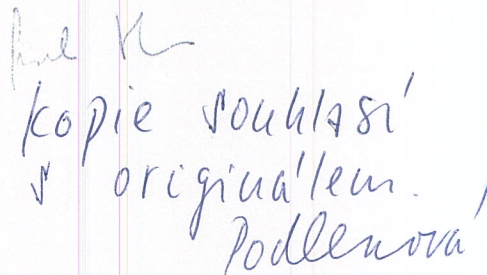 kopie souhlasí
s originálem.
Podlenová